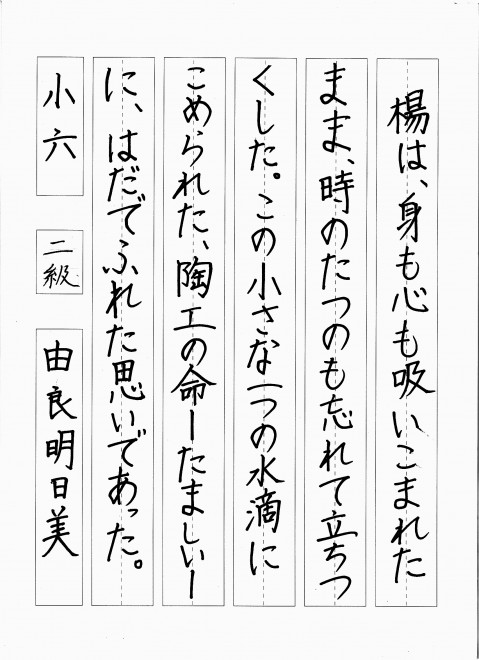 楊は、身も心も吸いこまれた
まま、時のたつのも忘れて立ちつ
くした。この小さな一つの水滴に
こめられた、陶工の命ーたましいー
に、はだでふれた思いであった。
小六 二級 由良明日美